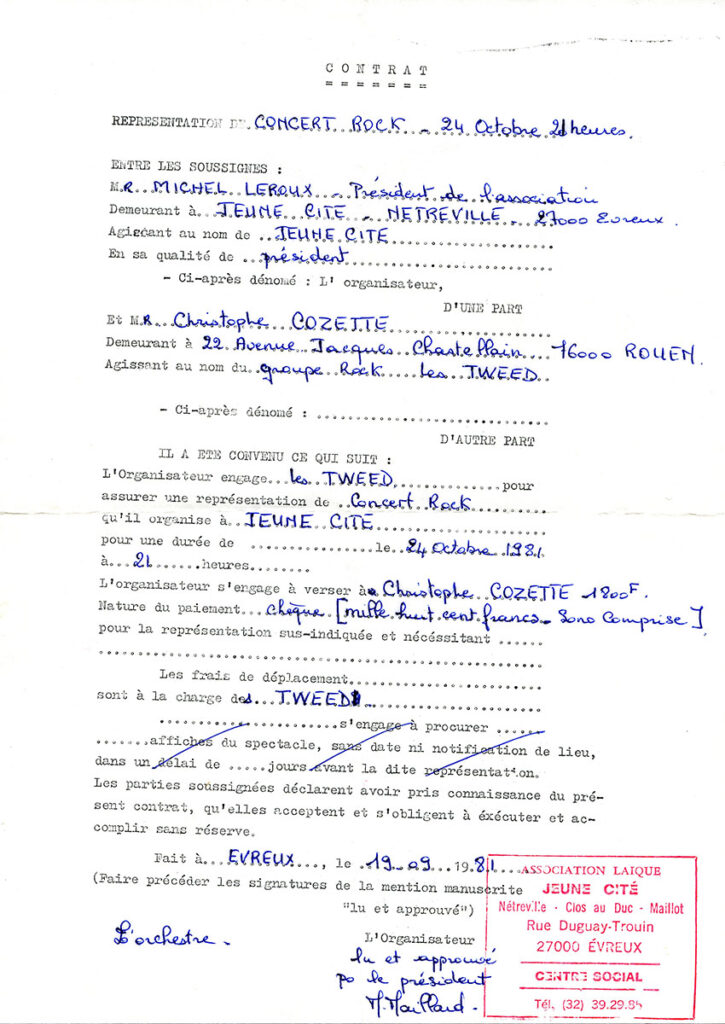 CONTRAT
= = = = = = =
REPRESENTATION DE CONCERT ROCK - 24 Octobre 21 heures.
ENTRE LES SOUSSIGNES :
M.R. MICHEL LEROUX - Président de l'association
Demeurant à JEUNE CITE - NETREVILLE - 27000 Evreux.
Agissant au nom de JEUNE CITE
En sa qualité de président
- Ci-après dénomé : L' organisateur,
D'UNE PART
Et M.R. Christophe COZETTE
Demeurant à 22 Avenue Jacques Chastellain 76000 ROUEN.
Agissant au nom du groupe Rock les TWEED
- Ci-après dénomé : ..............................
D'AUTRE PART
IL A ETE CONVENU CE QUI SUIT :
L'Organisateur engage les TWEED pour
assurer une représentation de Concert Rock
qu'il organise à JEUNE CITE
pour une durée de ............... le 24 Octobre 1981
à 21 heures........
L'organisateur s'engage à verser à Christophe COZETTE 1800F.
Nature du paiement chèque [mille huit cent francs - Sono Comprise]
pour la représentation sus-indiquée et nécéssitant ......
..........................................................
Les frais de déplacement..........................
sont à la charge des TWEED
.......................s'engage à procurer ......
.......affiches du spectacle, sans date ni notification de lieu,
dans un délai de .....jours avant la dite représentation.
Les parties soussignées déclarent avoir pris connaissance du pré-
sent contrat, qu'elles acceptent et s'obligent à éxécuter et ac-
complir sans réserve.
Fait à EVREUX, le 19-09 1981
(Faire précéder les signatures de la mention manuscrite
"lu et approuvé")
L'orchestre.
L'Organisateur
lu et approuvé
po le président
M. Maillard.
ASSOCIATION LAIQUE
JEUNE CITÉ
Nétreville - Clos au Duc - Maillot
Rue Duguay-Trouin
27000 ÉVREUX
CENTRE SOCIAL
Tél. (32) 39.29.85